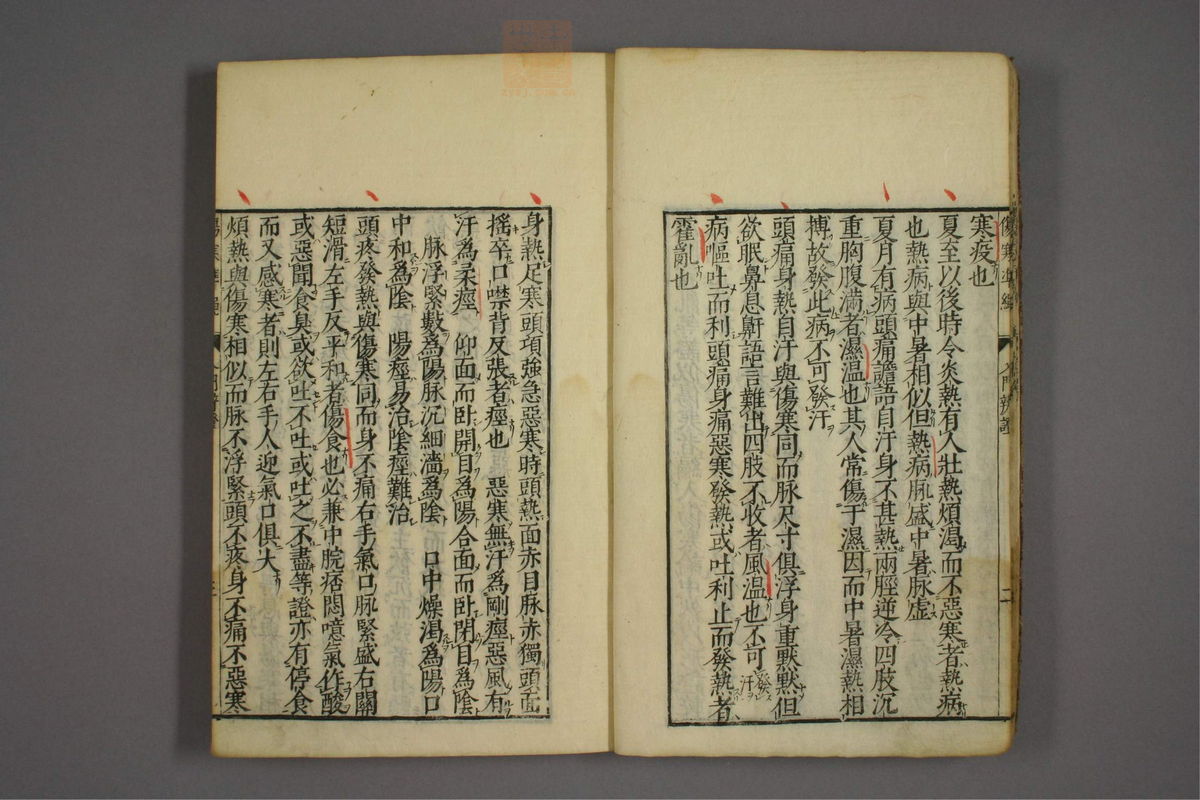 寒疫也
夏至以後時令炎熱有人壯熱煩渴而不惡寒者熱病
也熱病與中暑相似但熱病脉盛中暑脉虛
夏月有病頭痛譫語自汗身不甚熱兩脛逆冷四肢沉
重胸腹滿者濕温也其人常傷于濕因而中暑濕熱相
搏故發此病不可發汗
頭痛身熱自汗與傷寒同而脉尺寸俱浮身重默默但
欲眠鼻息鼾語言難出四肢不收者風温也不可發汗
病嘔吐而利頭痛身痛惡寒發熱或吐利止而發熱者
霍亂也
身熱足寒頭項強急惡寒時頭熱面赤目脉赤獨頭面
搖卒口噤背反張者痙也 惡寒無汗爲剛痙惡風有
汗爲柔痙 仰面而卧開目爲陽合面而卧閉目爲陰
脉浮緊數爲陽脉沉細濇爲陰 口中燥渴爲陽口
中和爲陰 陽痙易治陰痙難治
頭疼發熱與傷寒同而身不痛右手氣口脉緊盛右關
短滑左手反平和者傷食也必兼中脘痞悶噫氣作酸
或惡聞食臭或欲吐不吐或吐之不盡等證亦有停食
而又感寒者則左右手人迎氣口俱大
煩熱與傷寒相似而脉不浮緊頭不疼身不痛不惡寒